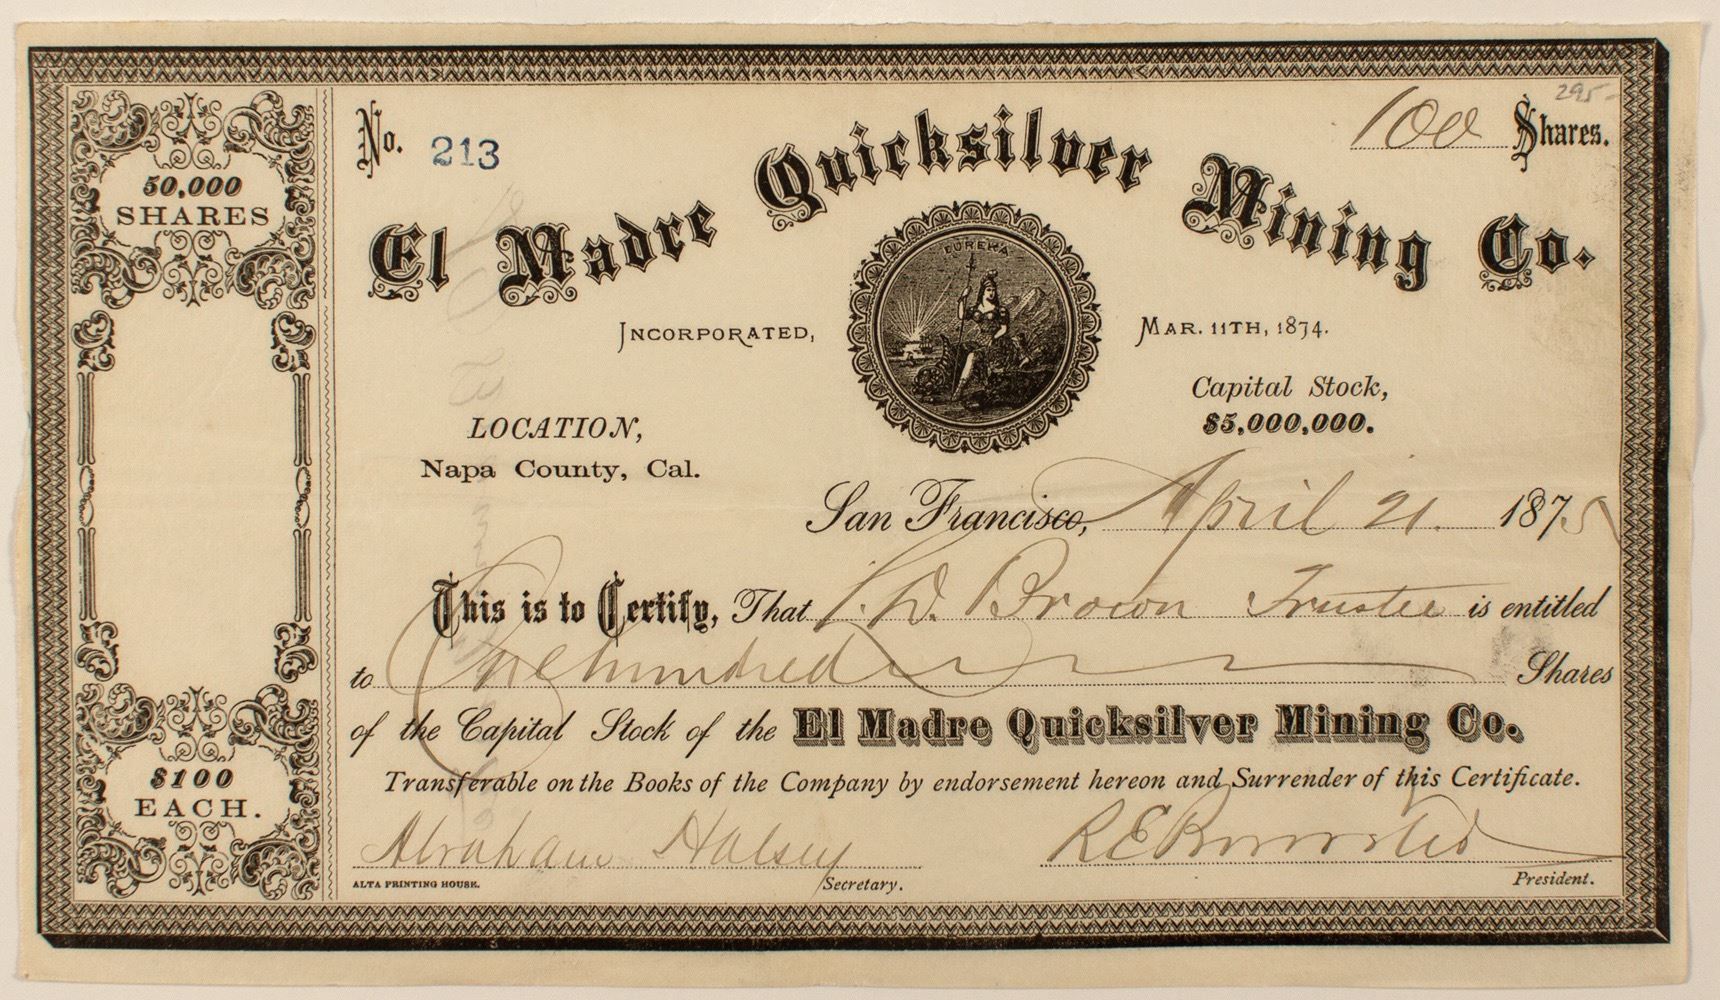 295-
No. 213
100 Shares.
El Madre Quicksilver Mining Co.
50,000
SHARES
EUREKA
INCORPORATED, MAR. 11TH, 1874.
Capital Stock,
$5,000,000.
LOCATION,
Napa County, Cal.
San Francisco, April 21. 1875
This is to Certify, That W. Brown Trustee is entitled
to One hundred Shares
of the Capital Stock of the El Madre Quicksilver Mining Co.
$100
EACH.
Transferable on the Books of the Company by endorsement hereon and Surrender of this Certificate.
Abraham Halsey
ALTA PRINTING HOUSE. Secretary. President.